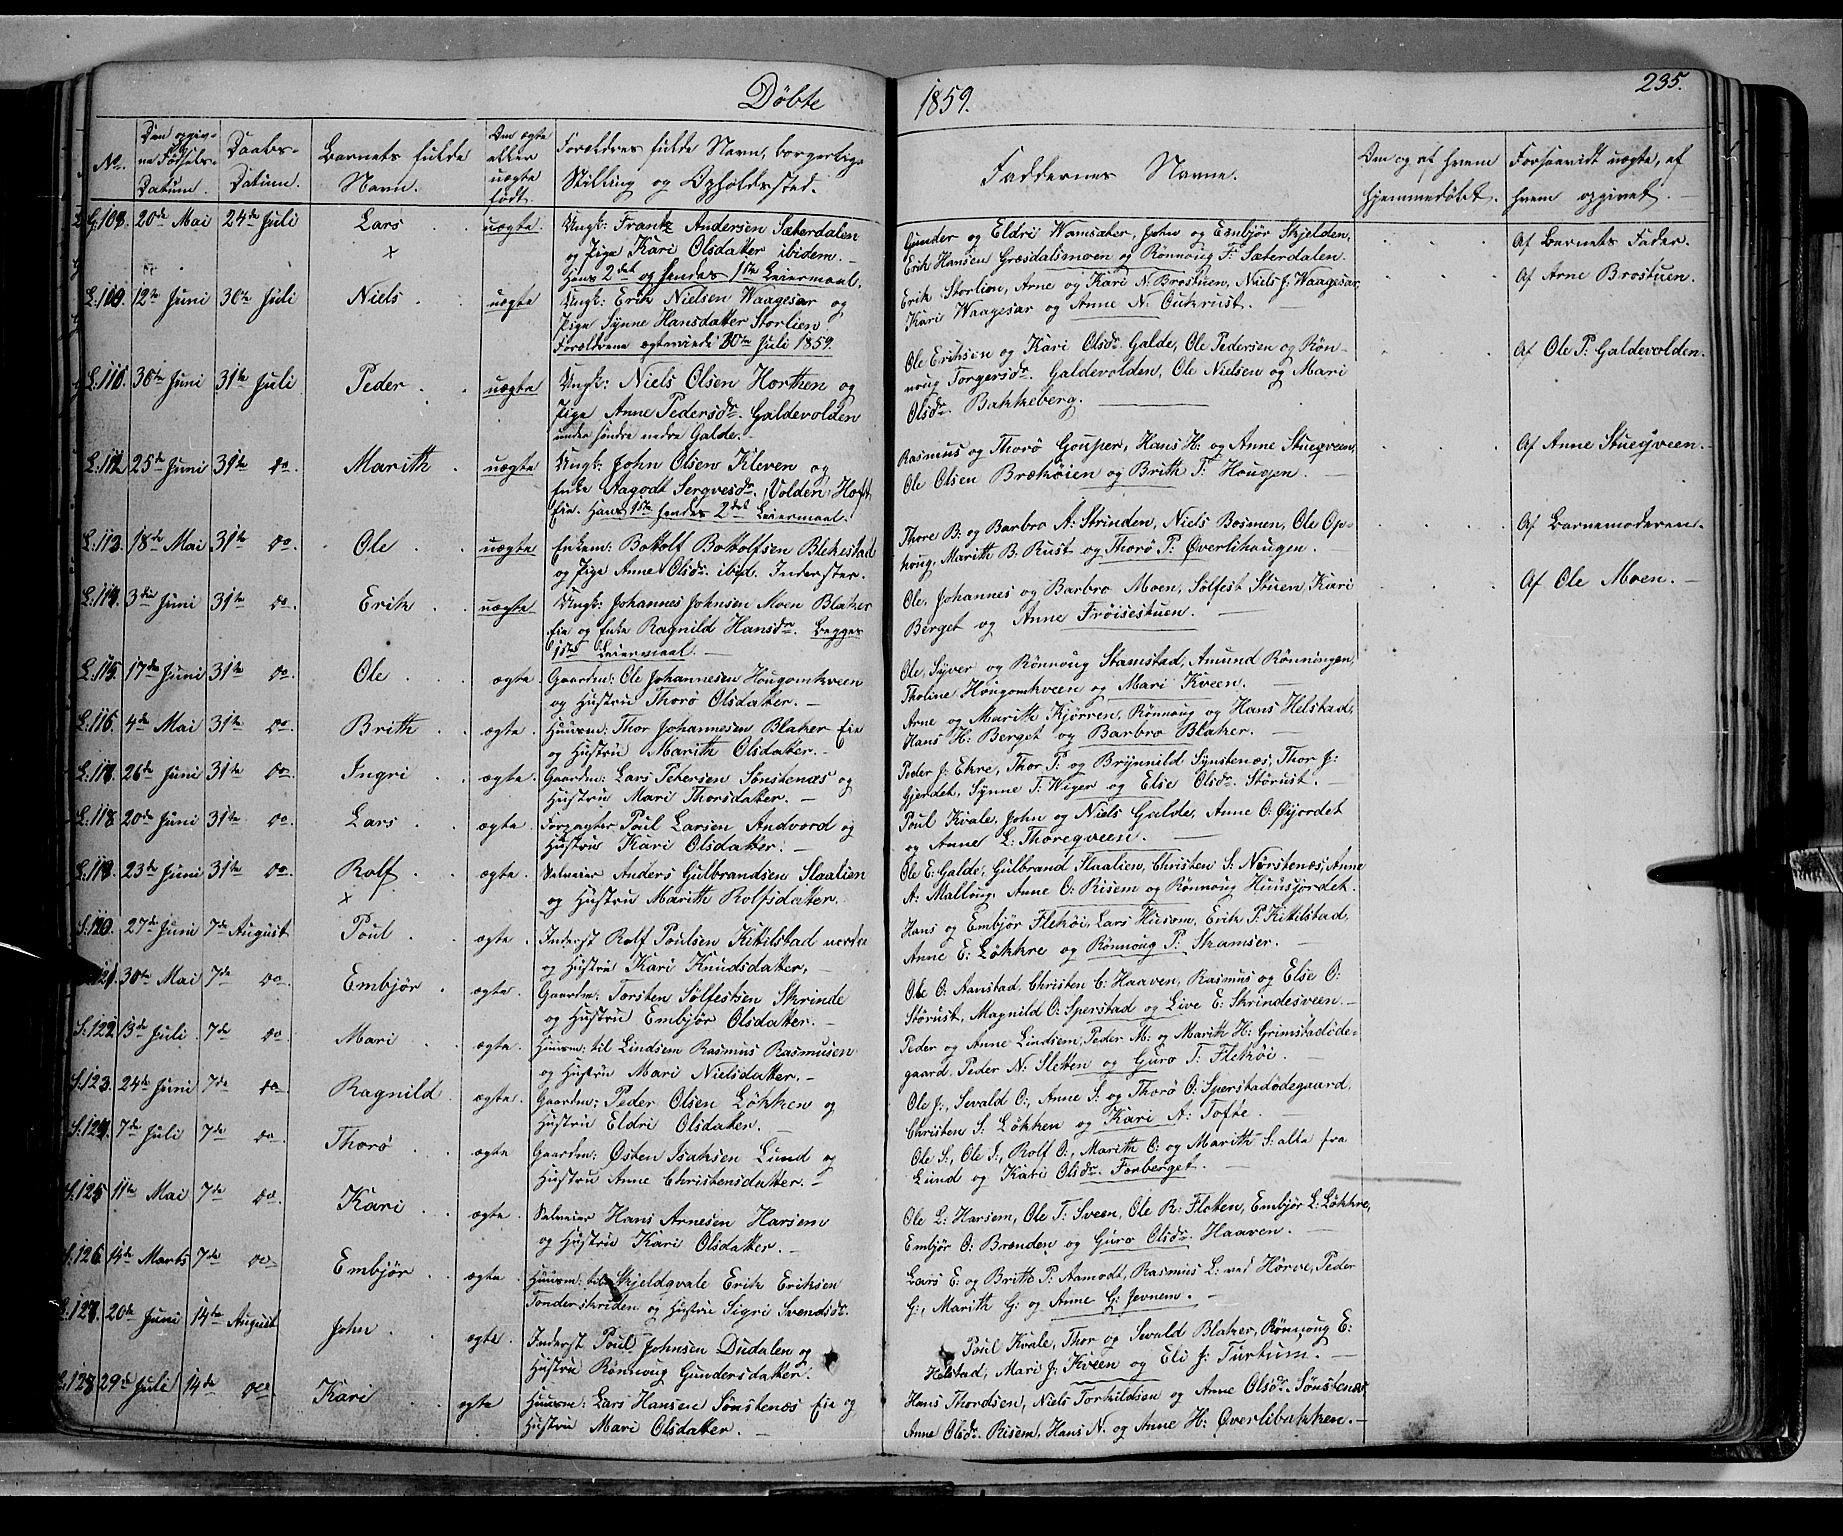 Døbte 1859. 235.
No. Den opgivne Fødsels-Datum. Daabs-Datum. Barnets fulde Navn. Om ægte eller uægte født. Forældres fulde Navn, borgerlige Stilling og Opholdssted. Faddernes Navne. Om og af hvem hjemmedøbt. Forsaavidt uægte, af hvem opgivet.
L:108. 20de Mai 24de Juli Lars uægte Ungk: Frantz Andersen Sæterdalen
og Pige Kari Olsdatter ibidem. —
Hans 2det og hendes 1ste Leiermaal.
Gunder og Eldri Vamsæter, John og Embjør Skjelden,
Erik Hansen Græsdalsmoen og Rønnoug F: Sæterdalen.
Af Barnets Fader. —
L:109. 12te Juni 30te Juli Niels uægte Ungk: Erik Nielsen Waagesar og
Pige Synne Hansdatter Storlien.
Forældrene ægteviede 30te Juli 1859.
Erik Storlien, Arne og Kari N: Brostuen, Niels J: Waagesar,
Kari Waagesar og Anne N. Cukrust. —
Af Arne Brostuen.
L:110. 30te Juni 31te Juli Peder uægte Ungk: Niels Olsen Horthen og
Pige Anne Pedersdr. Galdevolden
under søndre nedre Galde. —
Ole Eriksen og Kari Olsdr. Galde, Ole Pedersen og Røn-
noug Torgersdr. Galdevolden, Ole Nielsen og Mari
Olsdr. Bakkeberg.
Af Ole P: Galdevolden.
L:112. 25de Juni 31te do. Marith uægte Ungk: John Olsen Kleven og
Enke Aagodt Sergvesdr. Volden, Hoft
Eie. Hans 1ste hendes 2det Leiermaal. —
Rasmus og Thorø Gouper, Hans H: og Anne Stuegveen,
Ole Olsen Brækøien og Brith T: Hougen. —
Af Anne Stuegveen. —
L:113. 18de Mai 31te do. Ole uægte Enkem: Bottolf Bottolfsen Blekestad
og Pige Anne Olsdr. ibid. Inderster. —
Thore B: og Barbro A: Strinden, Niels Bosmen, Ole Op-
houg, Marith B. Rust og Thorø P: Øverlihaugen. —
Af Barnemoderen. —
L:114. 3die Juni 31te do. Erik uægte Ungk: Johannes Johnsen Moen Blaker
Eie og Enke Ragnild Hansdr. Begges
1ste Leiermaal. —
Ole, Johannes og Barbro Moen, Sølfest Stuen, Kari
Berget og Anne Frøisestuen. —
Af Ole Moen. —
L:115. 17de Juni 31te do. Ole ægte Gaardm: Ole Johannesen Hougomkveen
og Hustru Thorø Olsdatter. —
Ole, Syver og Rønnoug Stamstad, Amund Rønningen,
Tholine Hougomkveen og Mari Kveen. —
L:116. 4de Mai 31te do. Brith ægte Huusm: Thor Johannesen Blaker Eie
og Hustru Marith Olsdatter. —
Arne og Marith Kjørren, Rønnoug og Hans Helstad,
Hans H: Berget og Barbro Blaker. —
L:117. 26de Juni 31te do. Ingri ægte Gaardm: Lars Petersen Sønstenæs og
Hustru Mari Thorsdatter. —
Peder J: Ekre, Thor P: og Brynnild Synstenæs, Thor J:
Gjerdet, Synne T: Wiger og Else Olsdr. Størust. —
L:118. 20de Juni 31te do. Lars ægte Forpagter Poul Larsen Andvord og
Hustru Kari Olsdatter. —
Poul Kvale, John og Niels Galde, Anne O: Øijordet
og Anne L: Thoregveen. —
L:119. 23de Juni 31te do. Rolf ægte Selveier Anders Gulbrandsen Slaalien
og Hustru Marith Rolfsdatter. —
Ole E: Galde, Gulbrand Slaalien, Christen S: Nørstenæs, Anne
A: Malloug, Anne O: Risem og Rønnoug Huusjordet. —
S:120. 27de Juni 7de August Poul ægte Inderst Rolf Poulsen Kittilstad nordre
og Hustru Kari Knudsdatter,
Hans og Embjør Flekøi, Lars Husom, Erik P: Kittilstad,
Anne E: Løkkre og Rønnoug P: Skamser. —
121. 30te Mai 7de do. Embjør ægte Gaardm: Torsten Sølfestsen Skrinde
og Hustru Embjør Olsdatter. —
Ole O: Aanstad, Christen C: Haaven, Rasmus og Else O:
Størust, Magnild O: Sperstad og Live E: Skrindesveen. —
S:122. 13de Juli 7de do. Mari ægte Huusm: til Lindsem Rasmus Rasmusen
og Hustru Mari Nielsdatter. —
Peder og Anne Lindsem, Peder M: og Marith H: Grimstadøde-
gaard, Peder N: Sletten og Guro T: Flekøi. —
S:123. 24de Juni 7de do. Ragnild ægte Gaardm: Peder Olsen Løkken og
Hustru Eldri Olsdatter. —
Ole J:, Sevald O:, Anne S: og Thorø O: Sperstadødegaard,
Christen S: Løkken og Kari A: Tofte. —
S:124. 7de Juli 7de do. Thorø ægte Gaardm: Østen Isaksen Lund og
Hustru Anne Christensdatter. —
Ole S:, Ole I:, Rolf O:, Marith O: og Marith S: alle fra
Lund og Kari Olsdr. Forberget. —
S:125 11te Mai 7de do. Kari ægte Selveier Hans Arnesen Harsem
og Hustru Kari Olsdatter. —
Ole L: Harsem, Ole T: Sveen, Ole R: Flotten, Embjør L: Løkkre,
Embjør O: Brenden og Guro Olsdr. Haaven. —
S:126 14de Marts 7de do. Embjør ægte Huusm: til Skjeldgvale Erik Eriksen
Tonderskriden og Hustru Sigri Svendsdr.
Lars E: og Britte P: Aamodt, Rasmus L: ved Hørve, Peder
G:, Marith G: og Anne G: Jevnem. —
L:127. 20de Juni 14te August John ægte Inderst Poul Johnsen Dudalen og
Hustru Rønnoug Gundersdatter.
Poul Kvale, Thor og Sevald Blaker, Rønnoug E:
Helstad, Mari J: Kveen og Eli J: Turtum. —
L:128 29de Juli 14de do. Kari ægte Huusm: Lars Hansen Sønstenæs Eie og
Hustru Mari Olsdatter. —
Hans Thordsen, Niels Torkildsen og Anne Olsdr. Sønstenæs
Anne Olsdr. Risem, Hans N. og Anne H: Øverlibakken. —